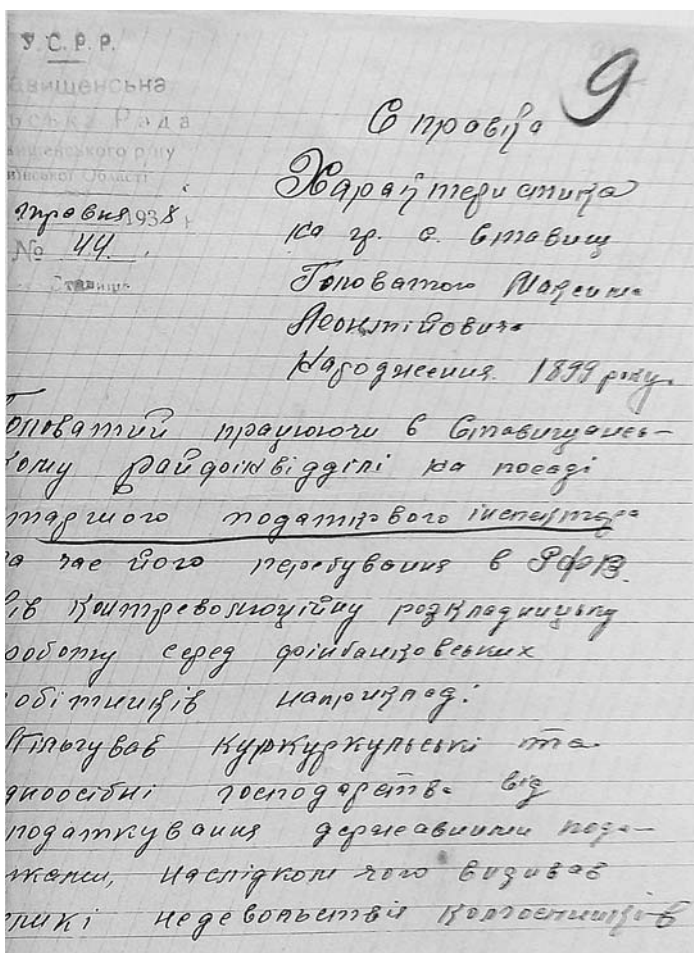 У.С.Р.Р.
9
авищенська
ська Рада
вищенського р-ну
ївської Області
травня 1938 р
№ 44.
Ставище
Справка
Характеристика
на гр. с. Ставищ
Головатого Максима
Леонтійовича
Народження 1899 року.
оловатий працюючи в Ставищансь-
кому райфінвідділі на посаді
таршого податкового інспектора
за час його перебування в РФВ.
ів контреволюційну розкладницьку
роботу серед фінбанковських
обітників наприклад:
Пільгував куркуркульські та
дноосібні господарства від
податкування державними пода-
тками, наслідком чого визивав
еликі недевольствія колгоспників